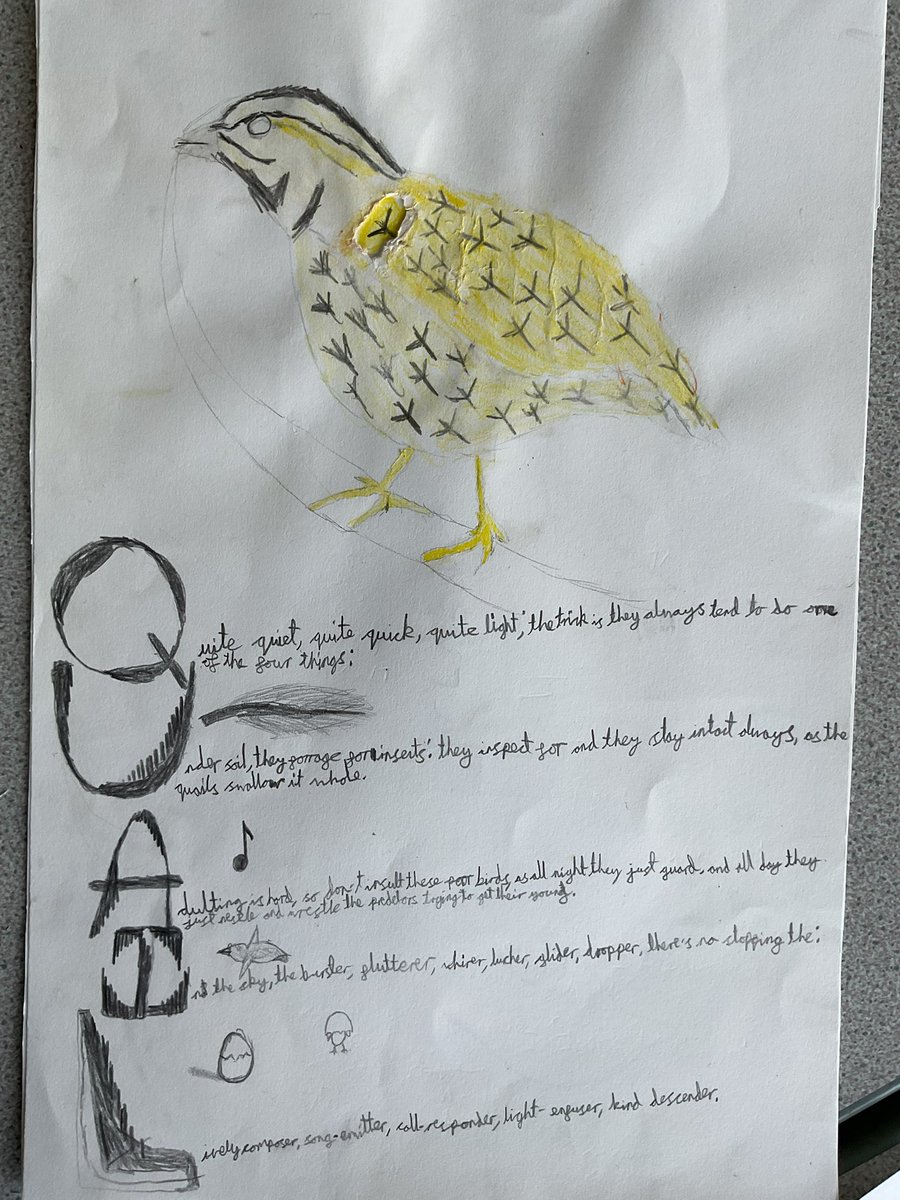 Quite quiet, quite quick, quite light; the trick is they always tend to do one
of the four things:
Under soil, they forrage for insects: they inspect for and they stay intact always, as the
quails swallow it whole.
Adulting is hard, so don't insult these poor birds, as all night they just guard, and all day they
just nestle and wrestle the predetors trying to get their young.
the sky, the burster, flutterer, whirer, glider, dropper, there's no stopping the:
Lively composer, song-emitter, call-responder, light- kind descender.